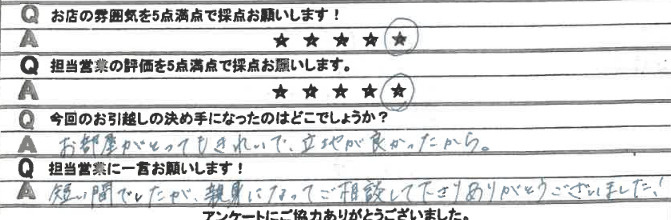 Q お店の雰囲気を5点満点で採点お願いします！
A ★ ★ ★ ★ ★
Q 担当営業の評価を5点満点で採点お願いします。
A ★ ★ ★ ★ ★
Q 今回のお引越しの決め手になったのはどこでしょうか？
A お部屋がとってもきれいで、立地が良かったから。
Q 担当営業に一言お願いします！
A 短い間でしたが、親身になってご相談して下さりありがとうございました！
アンケートにご協力ありがとうございました。